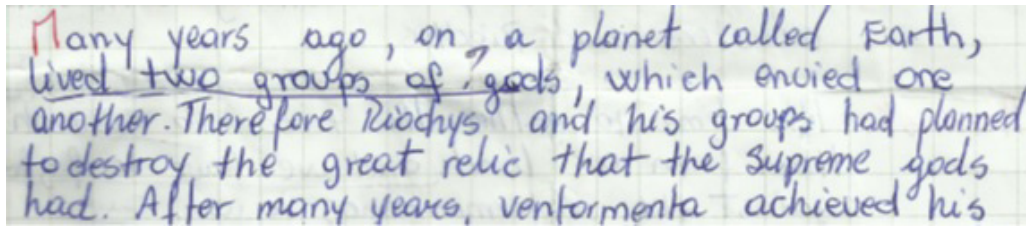 Many years ago, on a planet called Earth,
lived two groups of ? gods, which envied one
another. Therefore Riochys and his groups had planned
to destroy the great relic that the supreme gods
had. After many years, ventormenta achieved his